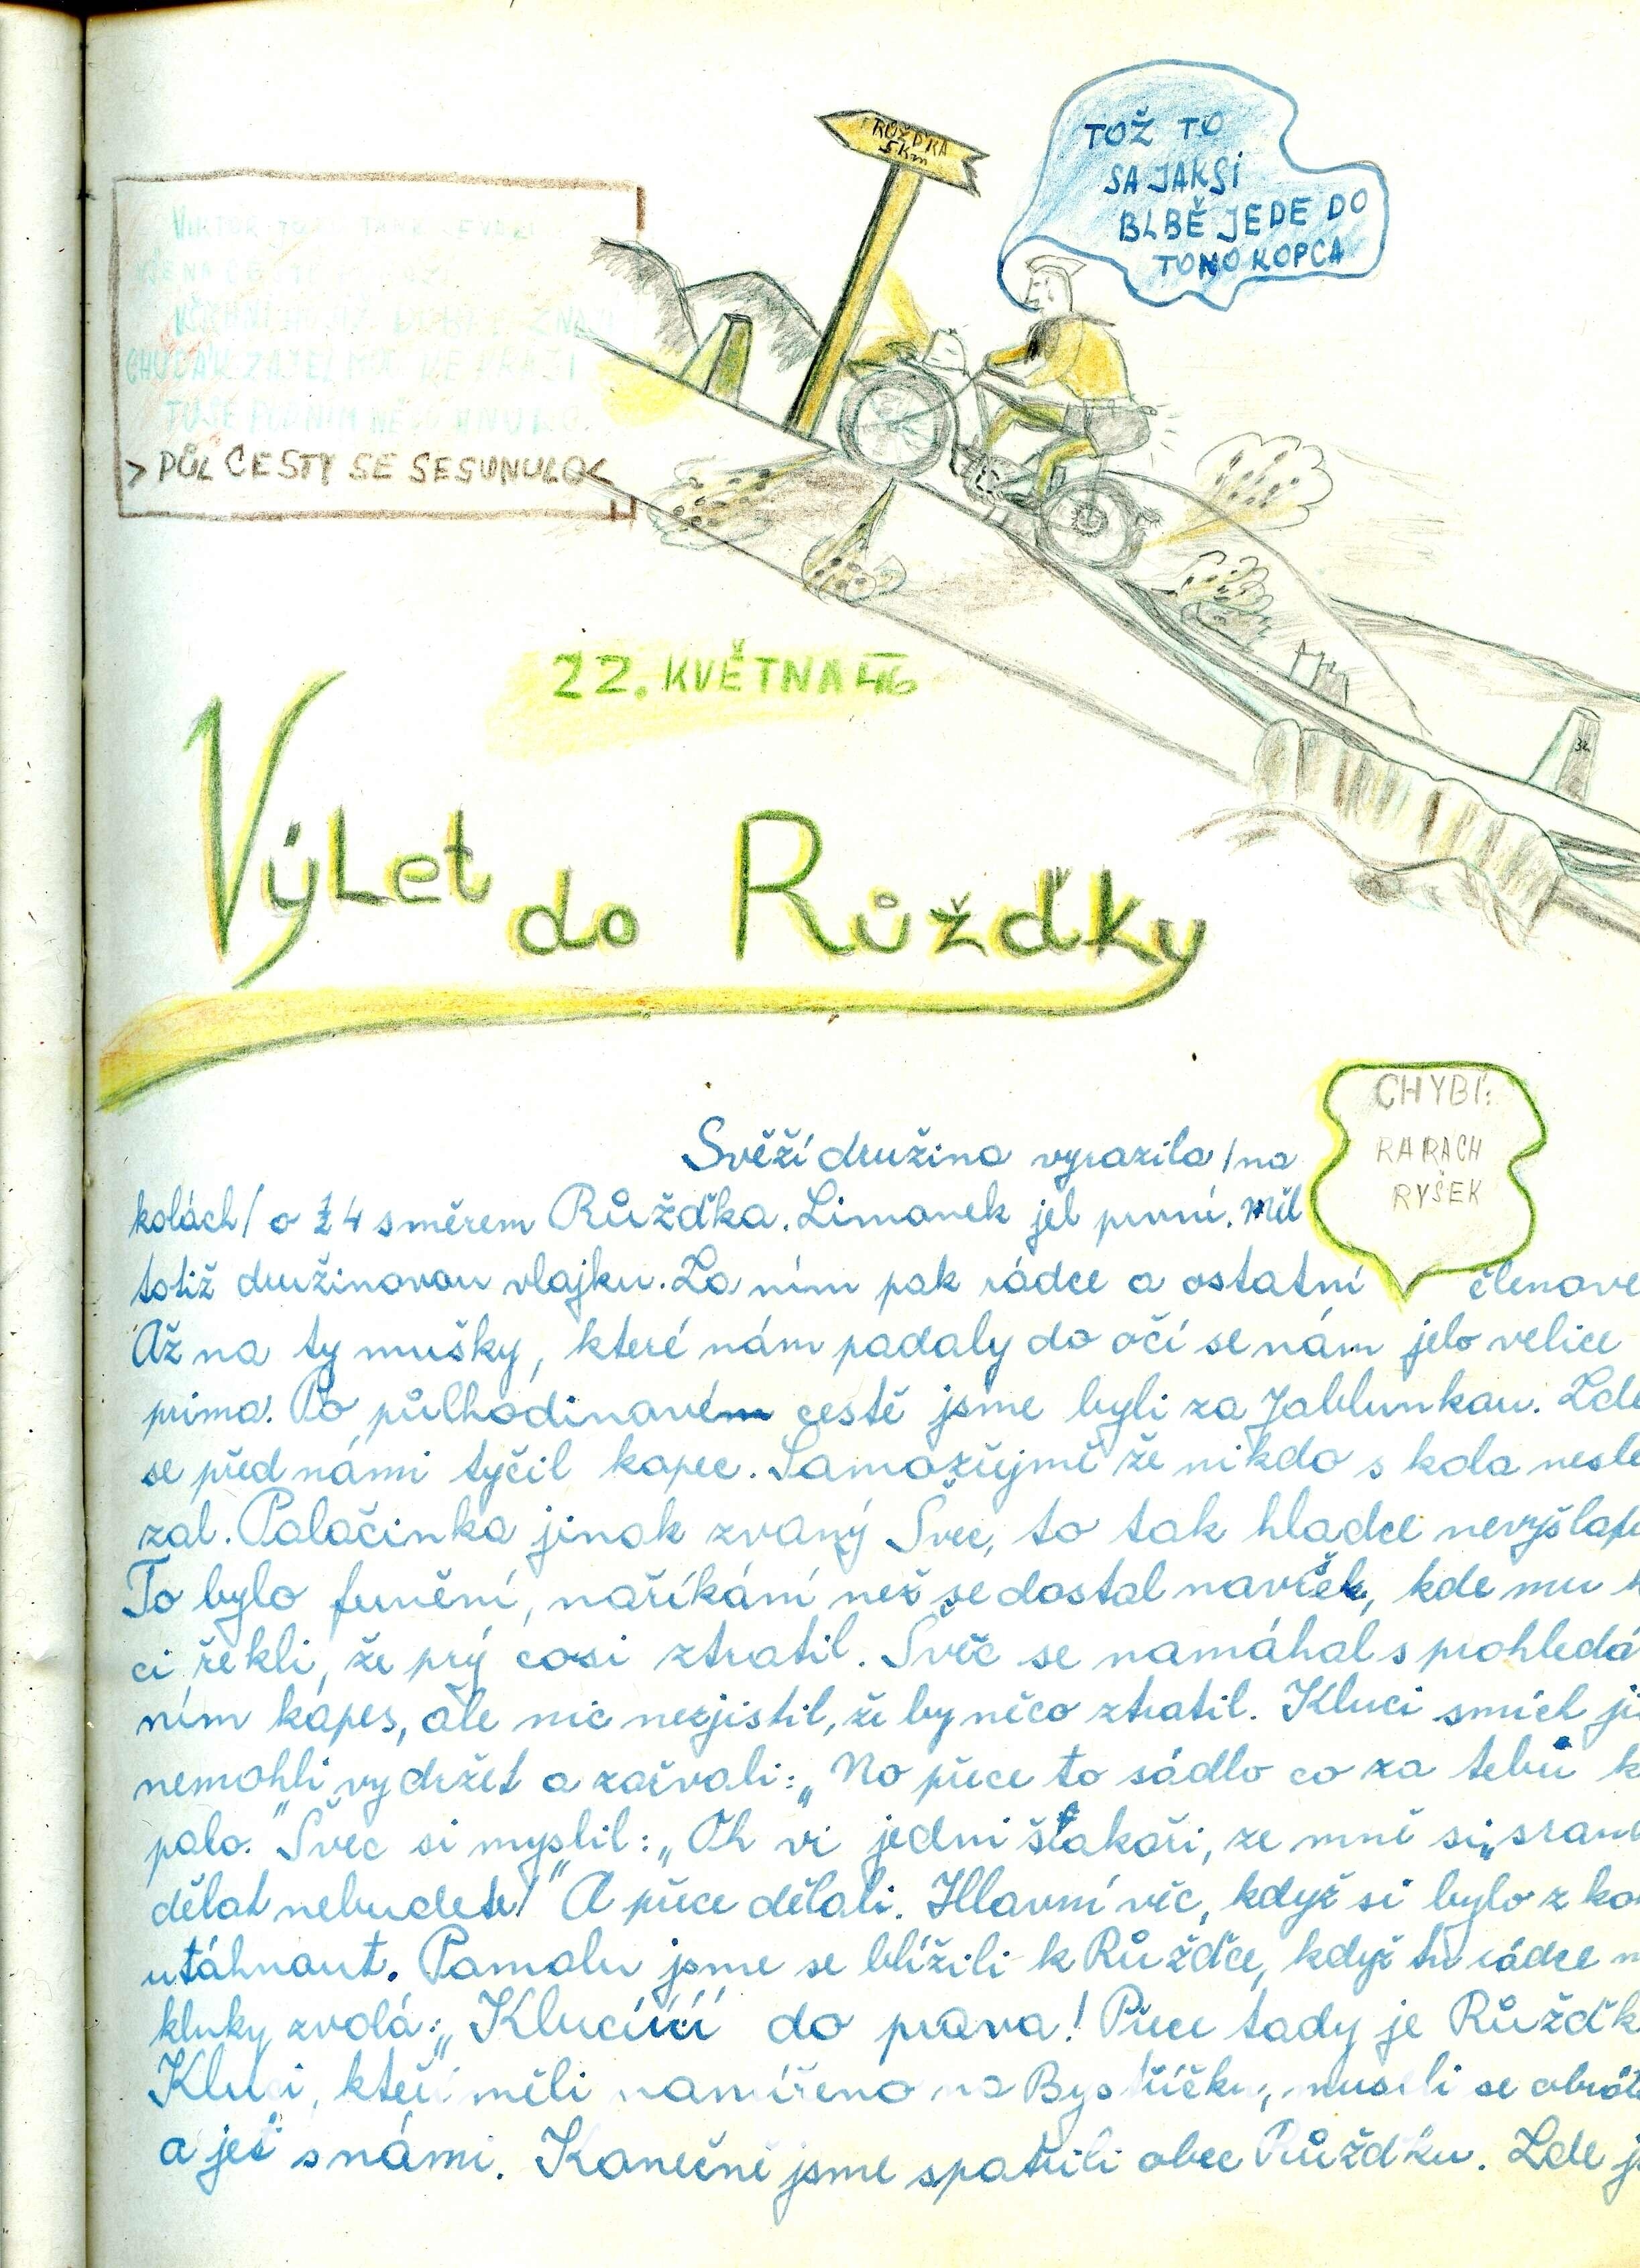 RŮŽĎKA
5 Km
TOŽ TO
SA JAKSI
BLBĚ JEDE DO
TOHO KOPCA
VIKTOR
CHUDÁK ZAJEL KE KRAJI
TU SE POD NÍM HNULO.
> PŮL CESTY SE SESUNULO <
22. KVĚTNA 46
Výlet do Růžďky
CHYBÍ:
RARACH
RYŠEK
34
Svěží družina vyrazila /na
kolách/ o ½ 4 směrem Růžďka. Limonek jel první. Měl
totiž družinovou vlajku. Za ním pak rádce a ostatní členové
Až na ty mušky, které nám padaly do očí se nám jelo velice
prima. Po půlhodinové cestě jsme byli za Jablunkou. Zde
se před námi tyčil kopec. Samozřejmě že nikdo s kola nesle
zal. Palačinka jinak zvaný Švec, to tak hladce nevyšlap
To bylo funění, naříkání než se dostal navršek, kde mu k
ci řekli, že prý cosi ztratil. Švec se namáhal s prohledá
ním kapes, ale nic nezjistil, že by něco ztratil. Kluci smích ji
nemohli vydržet a zařvali: „No přece to sádlo co za tebú k
palo." Švec si myslil: „Oh vi jedni šťakaři, ze mně si „srand
dělat nebudete!" A přece dělali. Hlavní věc, když si bylo z ko
utáhnout. Pomalu jsme se blížili k Růžďce, když tu rádce n
kluky zvolá: „Klucííííí do prava! Přece tady je Růžďk
Kluci, kteří měli namířeno na Bystřičku, museli se obrát
a jeť s námi. Konečně jsme spatřili obec Růžďku. Zde js